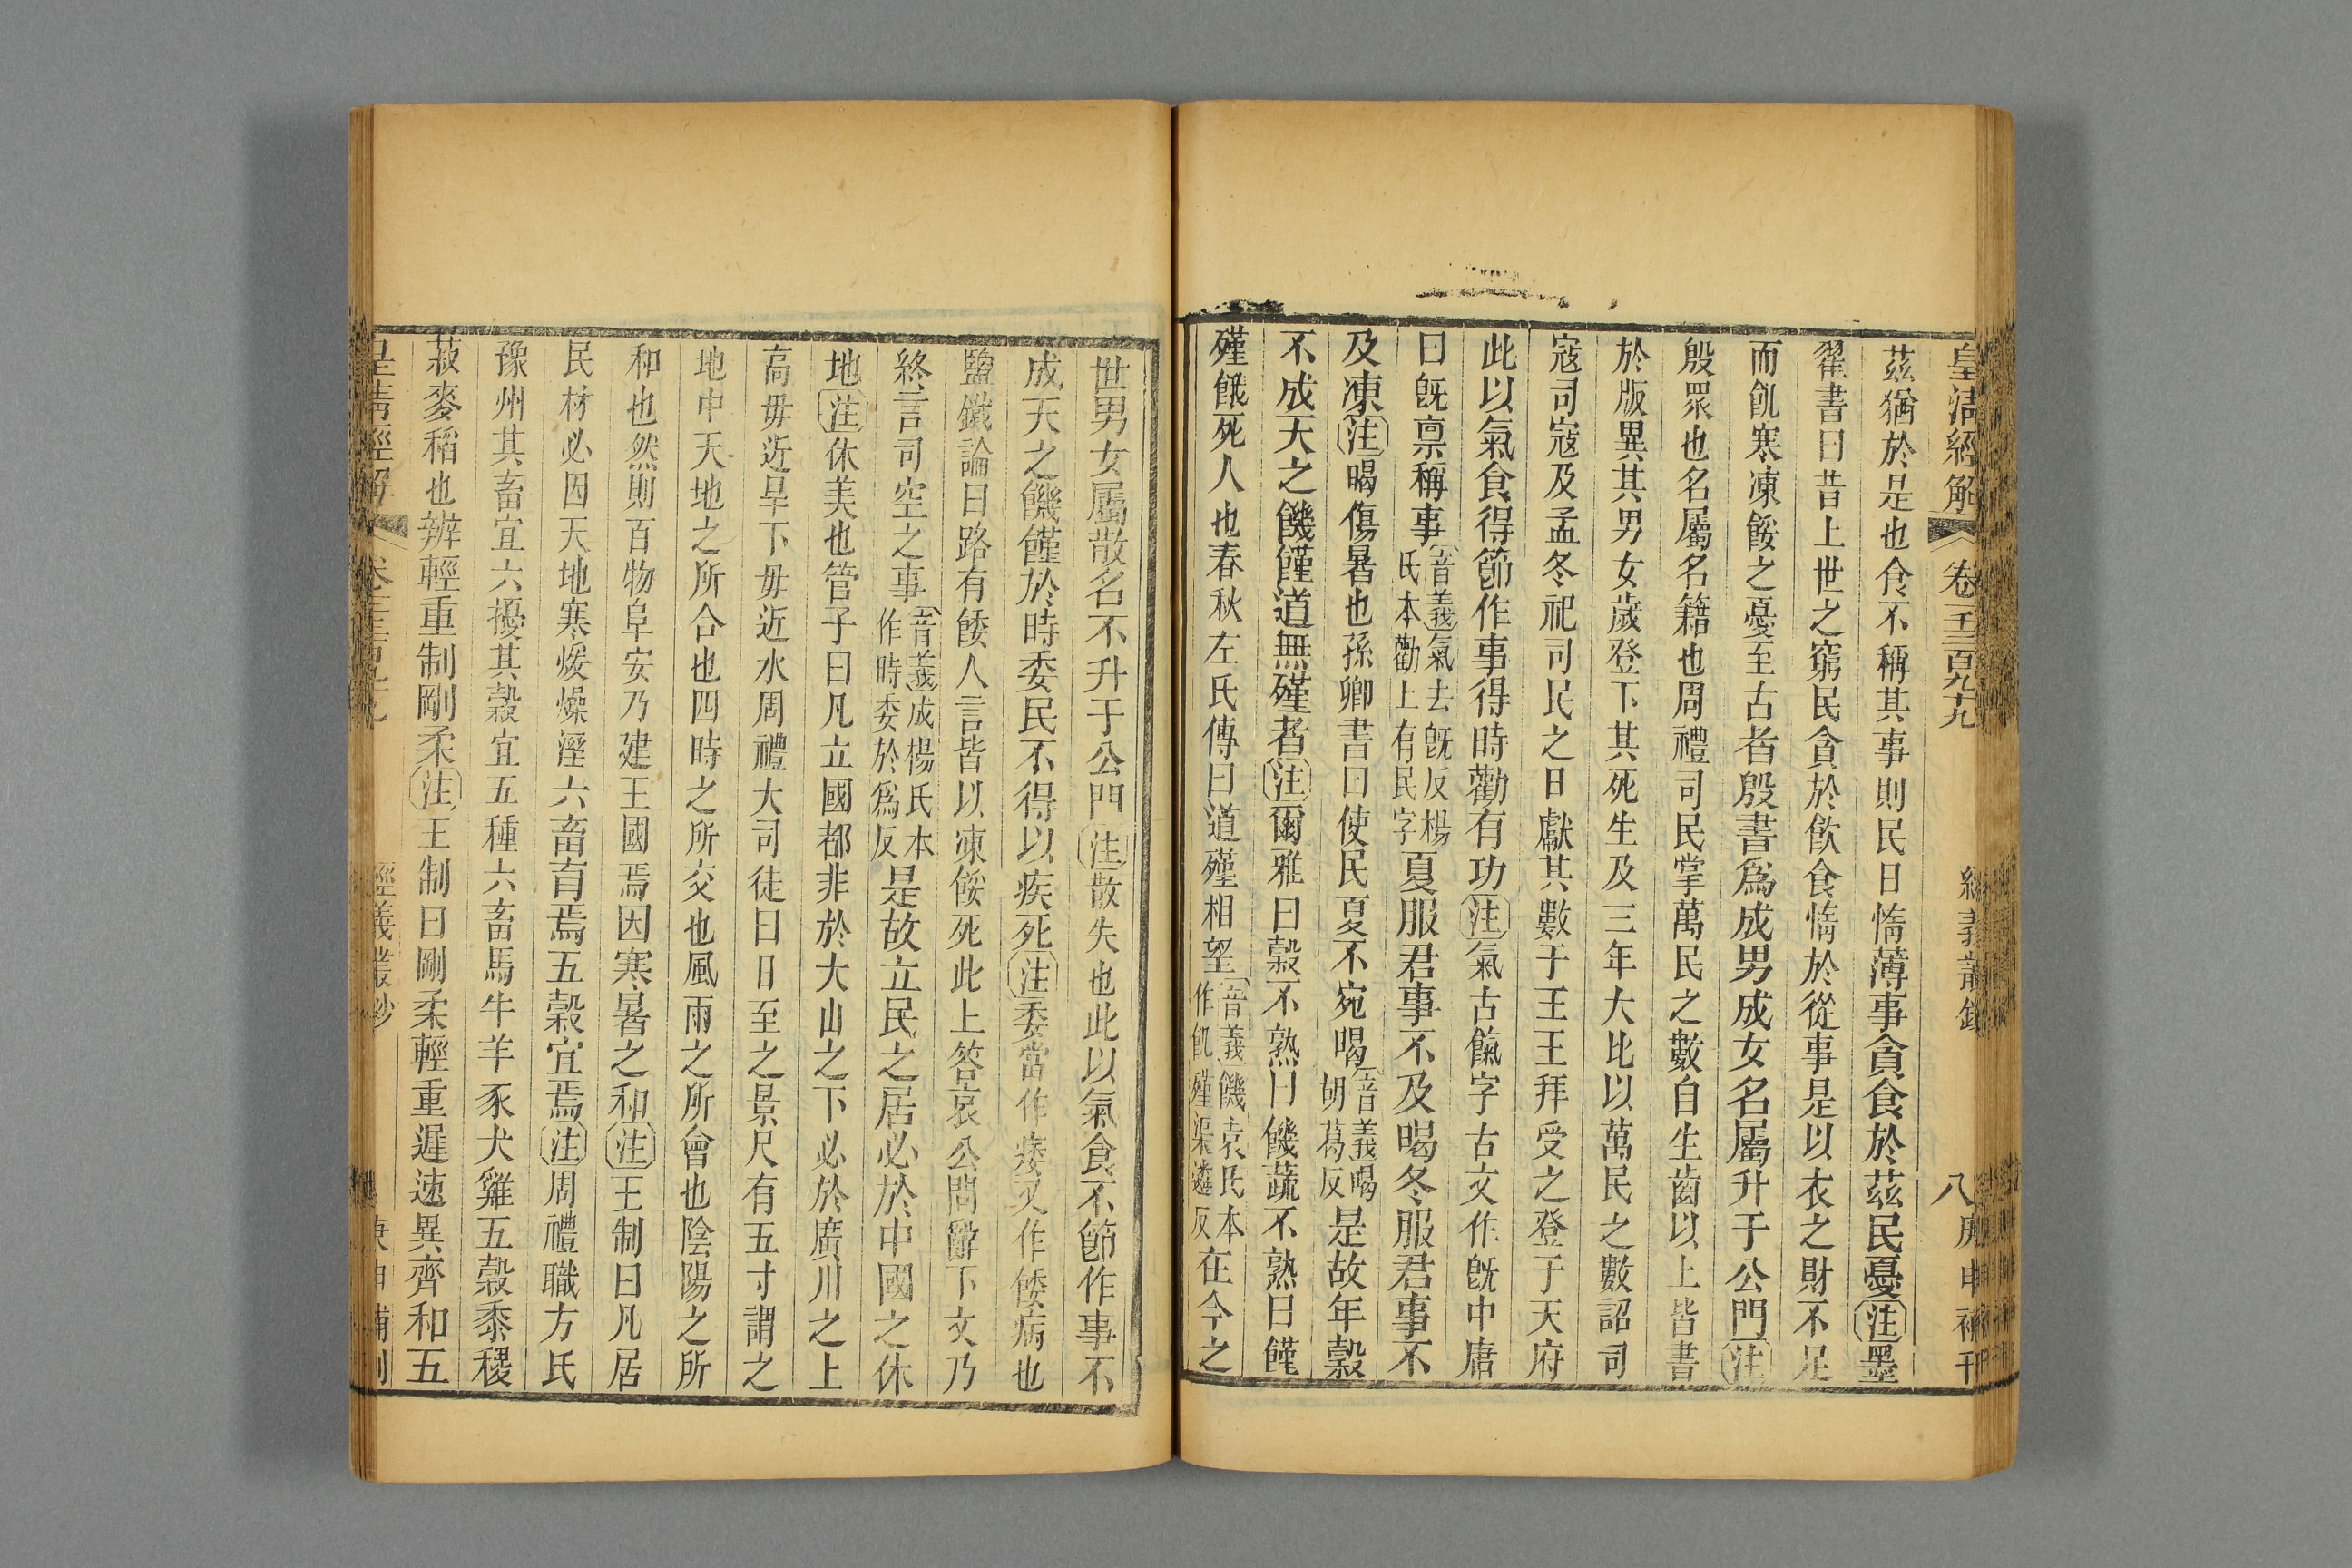 皇清經解 卷一千三百九十九 經義叢鈔 八 庚申補刊
茲猶於是也食不稱其事則民日惰薄事貪食於茲民憂注墨
翟書曰昔上世之窮民貪於飲食惰於從事是以衣之財不足
而飢寒凍餒之憂至古者殷書爲成男成女名屬升于公門注
殷眾也名屬名籍也周禮司民掌萬民之數自生齒以上皆書
於版異其男女歲登下其死生及三年大比以萬民之數詔司
寇司寇及孟冬祀司民之日獻其數于王王拜受之登于天府
此以氣食得節作事得時勸有功注氣古餼字古文作旣中庸
曰旣稟稱事音義氣去旣反楊氏本勸上有民字夏服君事不及暍冬服君事不
及凍注暍傷暑也孫卿書曰使民夏不宛暍音義暍胡葛反是故年穀
不成天之饑饉道無殣者注爾雅曰穀不熟曰饑蔬不熟曰饉
殣餓死人也春秋左氏傳曰道殣相望音義饑袁氏本作飢殣渠遴反在今之
世男女屬散名不升于公門注散失也此以氣食不節作事不
成天之饑饉於時委民不得以疾死注委當作痿又作倭病也
鹽鐵論曰路有餧人言皆以凍餒死此上答哀公問辭下文乃
終言司空之事音義成楊氏本作時委於爲反是故立民之居必於中國之休
地注休美也管子曰凡立國都非於大山之下必於廣川之上
高毋近旱下毋近水周禮大司徒曰日至之景尺有五寸謂之
地中天地之所合也四時之所交也風雨之所會也陰陽之所
和也然則百物阜安乃建王國焉因寒暑之和注王制曰凡居
民材必因天地寒煖燥溼六畜育焉五穀宜焉注周禮職方氏
豫州其畜宜六擾其穀宜五種六畜馬牛羊豕犬雞五穀黍稷
菽麥稻也辨輕重制剛柔注王制曰剛柔輕重遲速異齊和五
皇清經解 經義叢鈔 庚申補刊